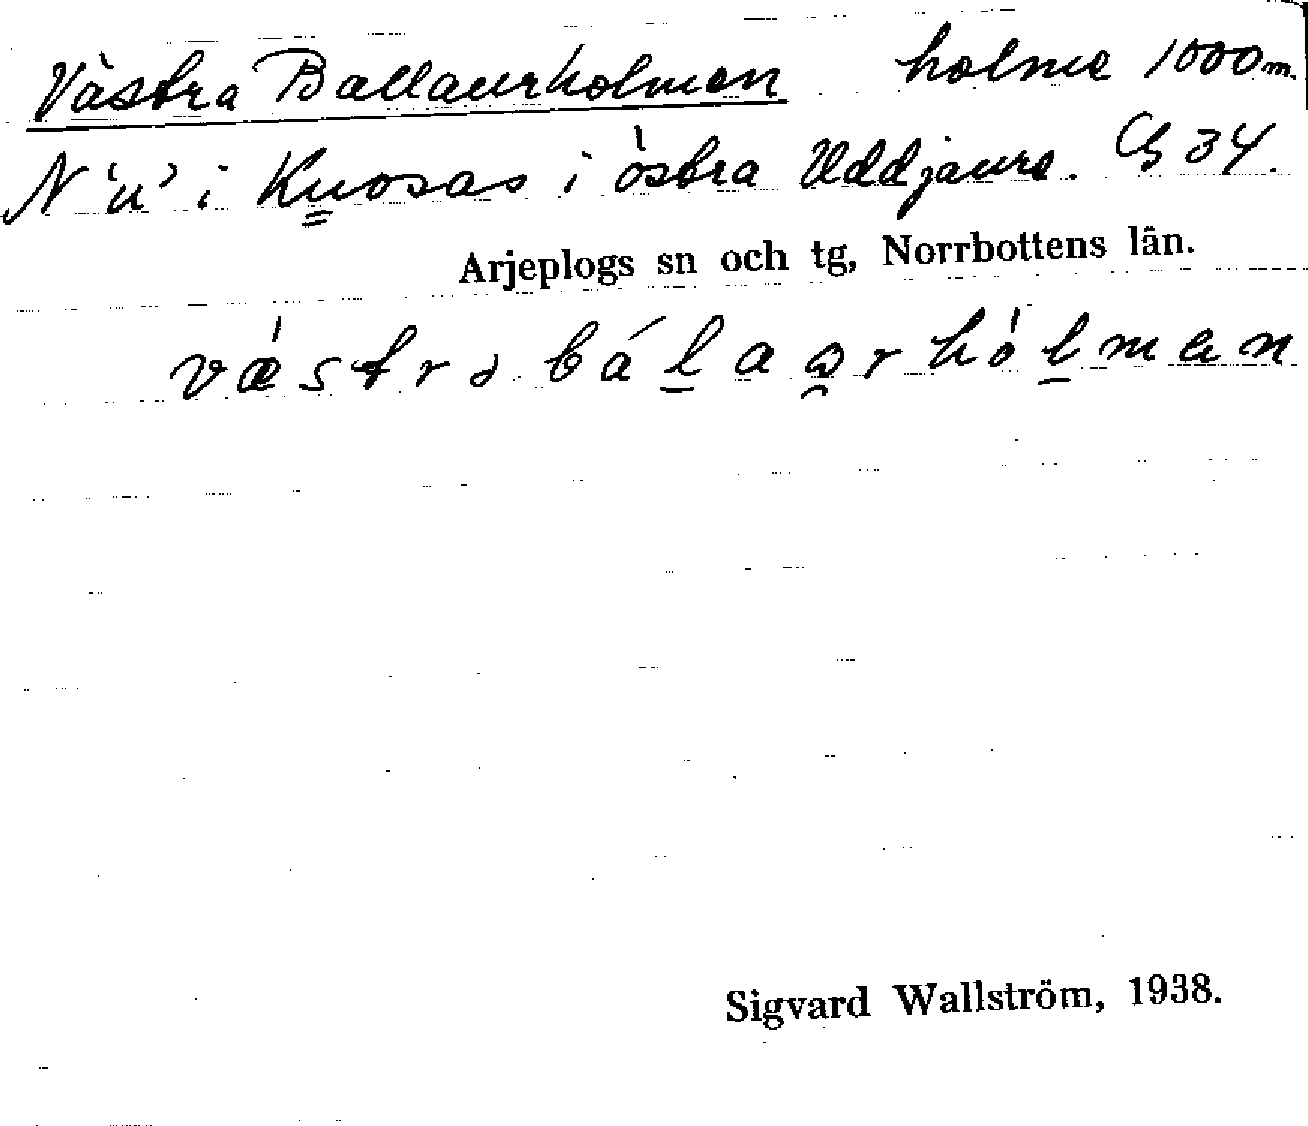 Västra Ballaurholmen holme 1000 m.
N 'u' i Kuosas i östra Uddjaure. G 34.
Arjeplogs sn och tg, Norrbottens län.
Sigvard Wallström, 1938.